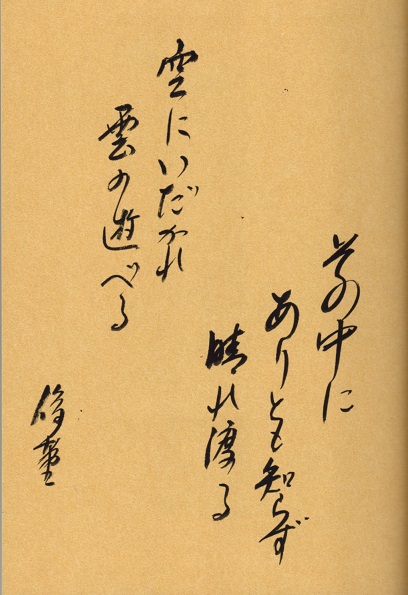 その中に
ありとも知らず
晴れ渡る
空にいだかれ
雲の遊べる